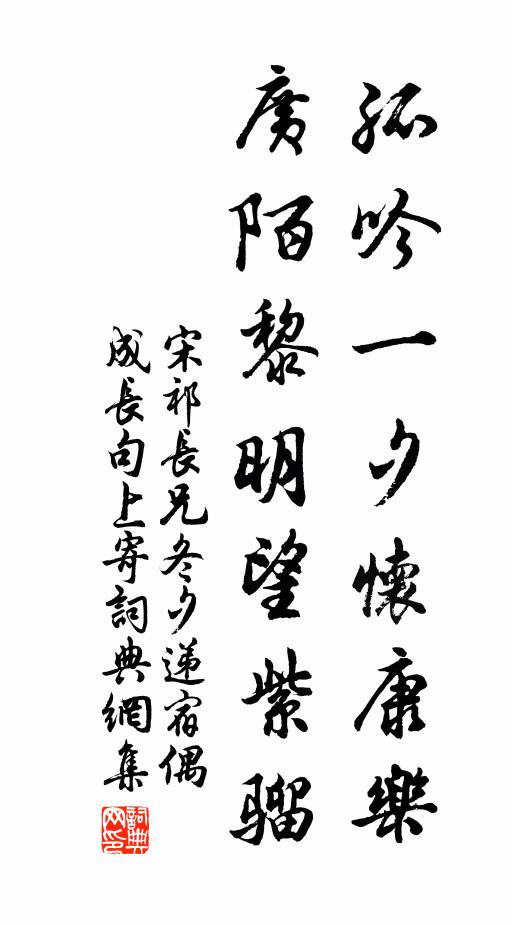 孤吟一夕懷康樂
廣陌黎明望紫騮
宋祁長兄冬夕遞宿偶
成長句上寄詞典網集
詞典
網印